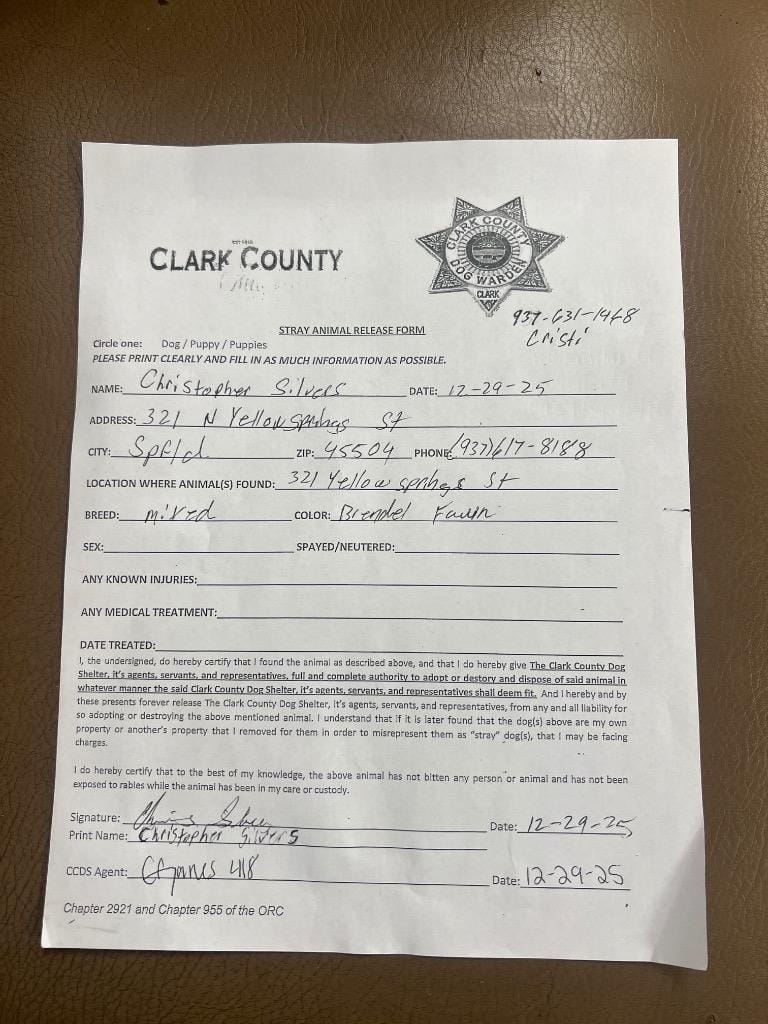 EST 1818
CLARK COUNTY
CLARK COUNTY
DOG WARDEN
CLARK
937-631-1468
Cristi
STRAY ANIMAL RELEASE FORM
Circle one: Dog / Puppy / Puppies
PLEASE PRINT CLEARLY AND FILL IN AS MUCH INFORMATION AS POSSIBLE.
NAME: Christopher Silvers DATE: 12-29-25
ADDRESS: 321 N Yellow Springs St
CITY: Spfld. ZIP: 45504 PHONE: (937)617-8188
LOCATION WHERE ANIMAL(S) FOUND: 321 Yellow springs St
BREED: mixed COLOR: Brendel Fawn
SEX: SPAYED/NEUTERED:
ANY KNOWN INJURIES:
ANY MEDICAL TREATMENT:
DATE TREATED:
I, the undersigned, do hereby certify that I found the animal as described above, and that I do hereby give The Clark County Dog
Shelter, it's agents, servants, and representatives, full and complete authority to adopt or destory and dispose of said animal in
whatever manner the said Clark County Dog Shelter, it's agents, servants, and representatives shall deem fit. And I hereby and by
these presents forever release The Clark County Dog Shelter, it's agents, servants, and representatives, from any and all liability for
so adopting or destroying the above mentioned animal. I understand that if it is later found that the dog(s) above are my own
property or another's property that I removed for them in order to misrepresent them as "stray" dog(s), that I may be facing
charges.
I do hereby certify that to the best of my knowledge, the above animal has not bitten any person or animal and has not been
exposed to rabies while the animal has been in my care or custody.
Signature: Date: 12-29-25
Print Name: Christopher Silvers
CCDS Agent: 418 Date: 12-29-25
Chapter 2921 and Chapter 955 of the ORC